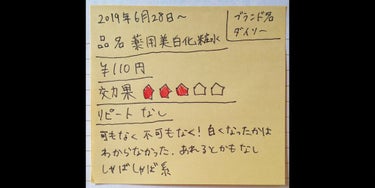 2019年6月28日～
ブランド名
ダイソー
品名 薬用美白化粧水
¥110円
効果
リピート なし
可もなく不可もなく！白くなったかは
わからなかった．あれるとかもなし
しゃばしゃば系